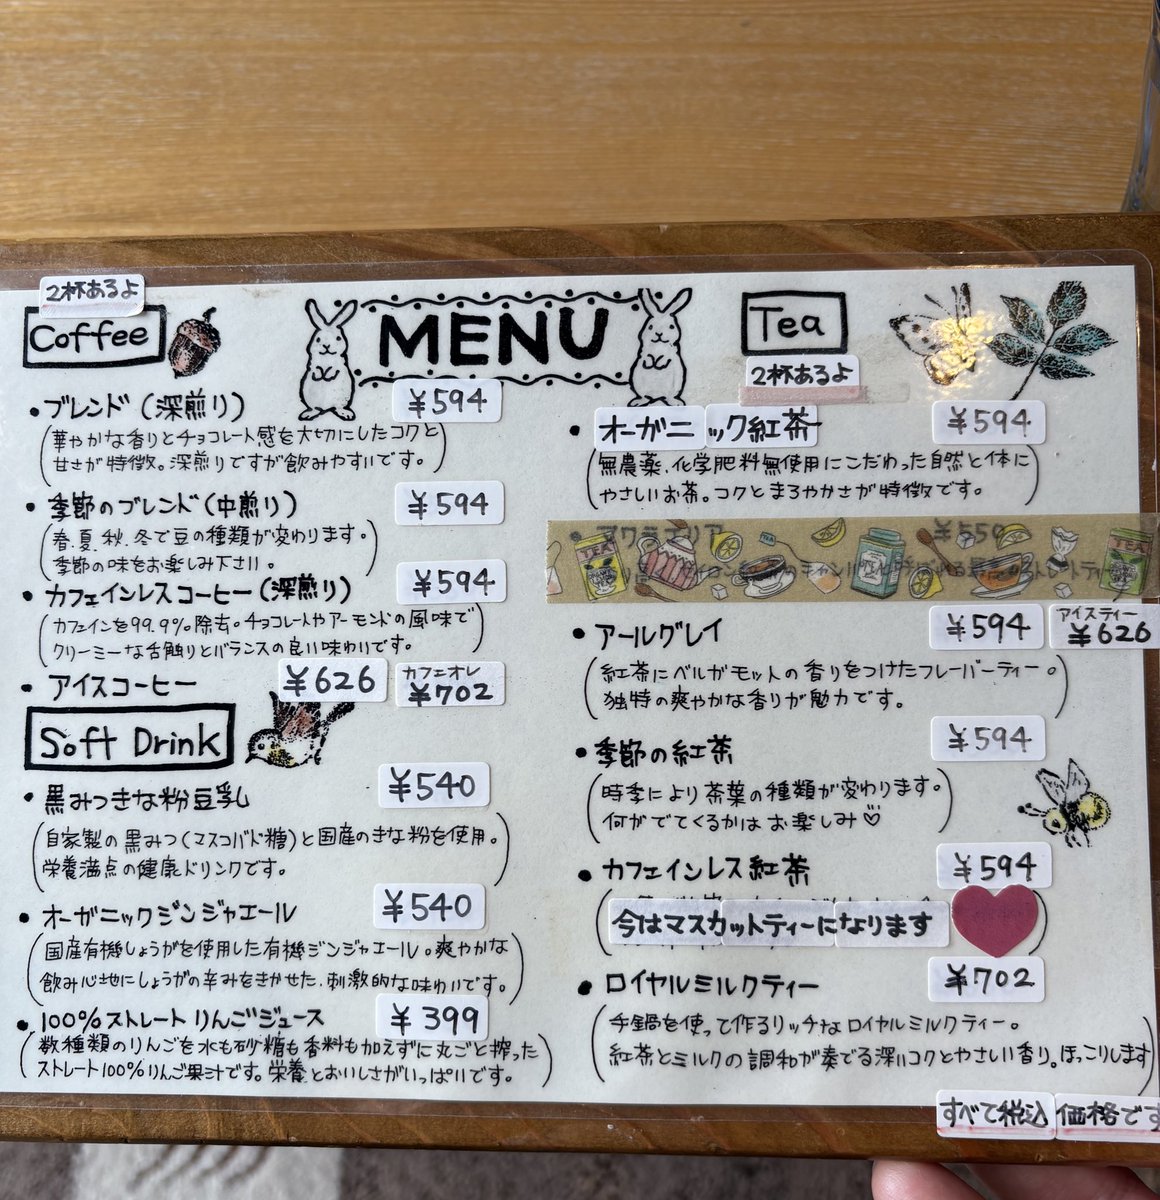 MENU
2杯あるよ
Coffee
・ブレンド(深煎り) ¥594
(華やかな香りとチョコレート感を大切にしたコクと
甘さが特徴。深煎りですが飲みやすいです。)
・季節のブレンド(中煎り) ¥594
(春、夏、秋、冬で豆の種類が変わります。
季節の味をお楽しみ下さい。)
・カフェインレスコーヒー(深煎り) ¥594
(カフェインを99.9%除去。チョコレートやアーモンドの風味で
クリーミーな舌触りとバランスの良い味わいです。)
・アイスコーヒー ¥626 カフェオレ ¥702
Soft Drink
・黒みつきな粉豆乳 ¥540
(自家製の黒みつ(マスコバド糖)と国産のきな粉を使用。
栄養満点の健康ドリンクです。)
・オーガニックジンジャエール ¥540
(国産有機しょうがを使用した有機ジンジャエール。爽やかな
飲み心地にしょうがの辛みをきかせた、刺激的な味わいです。)
・100%ストレートりんごジュース ¥399
(数種類のりんごを水も砂糖も香料も加えずに丸ごと搾った
ストレート100%りんご果汁です。栄養とおいしさがいっぱいです。)
Tea
2杯あるよ
・オーガニック紅茶 ¥594
(無農薬、化学肥料無使用にこだわった自然と体に
やさしいお茶。コクとまろやかさが特徴です。)
¥550
TEA
TEA
・アールグレイ ¥594 アイスティー ¥626
(紅茶にベルガモットの香りをつけたフレーバーティー。
独特の爽やかな香りが魅力です。)
・季節の紅茶 ¥594
(時季により茶葉の種類が変わります。
何がでてくるかはお楽しみ♡)
・カフェインレス紅茶 ¥594
(今はマスカットティーになります)
・ロイヤルミルクティー ¥702
(手鍋を使って作るリッチなロイヤルミルクティー。
紅茶とミルクの調和が奏でる深いコクとやさしい香り。ほっこりします)
すべて税込価格です